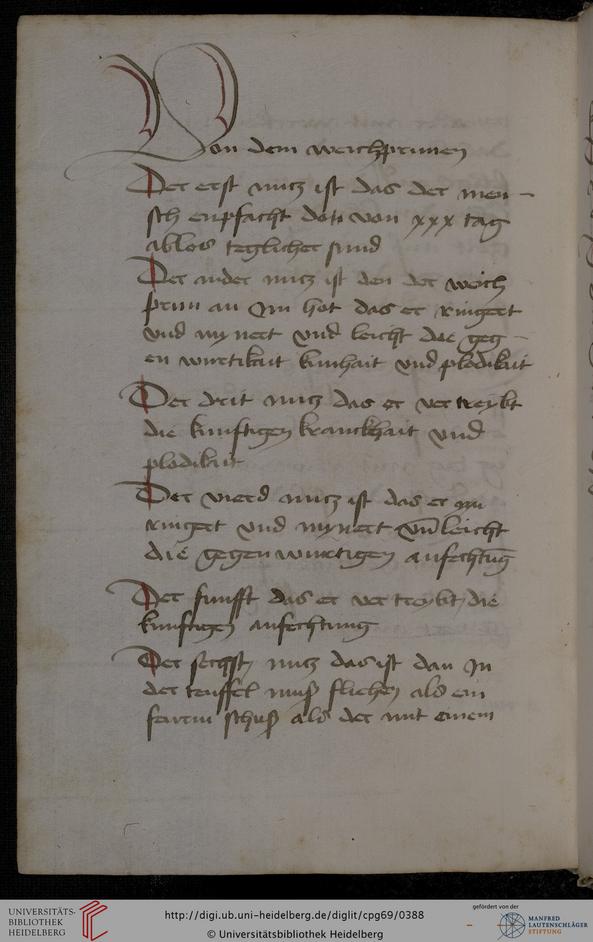 Von dem weichprunnen
Der erst nucz ist das der men-
sch enpfacht dotn von xxx tag
ablos teglicher sund
Der ander nucz ist den der weich
prun an Im hot das er ringert
vnd mynert vnd leicht die geg-
en wurtikait kunhait vnd plodikait
Der drit nucz das er vertreybt
die kunftigen kranckhait vnd
plodikait
Der vierd nucz ist das er
ringert vnd mynert vnd leicht
die gegenwurtigen anfechtung
Der funfft das er vertreybt die
kunftigen anfechtung
Der sechst nucz das ist dan In
der teuffel muß fliehen als ein
schuß als der mit einem
UNIVERSITÄTS-
BIBLIOTHEK
HEIDELBERG
http://digi.ub.uni-heidelberg.de/diglit/cpg69/0388
© Universitätsbibliothek Heidelberg
gefördert von der
MANFRED
LAUTENSCHLÄGER
STIFTUNG